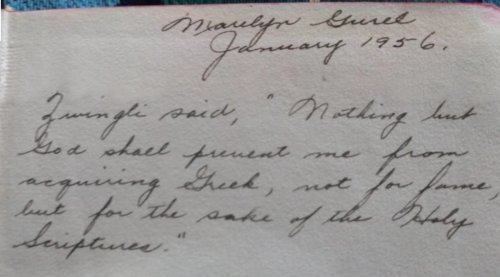 Marilyn Gurel
January 1956.
Zwingli said, "Nothing but
God shall prevent me from
acquiring Greek, not for fame,
but for the sake of the Holy
Scriptures."